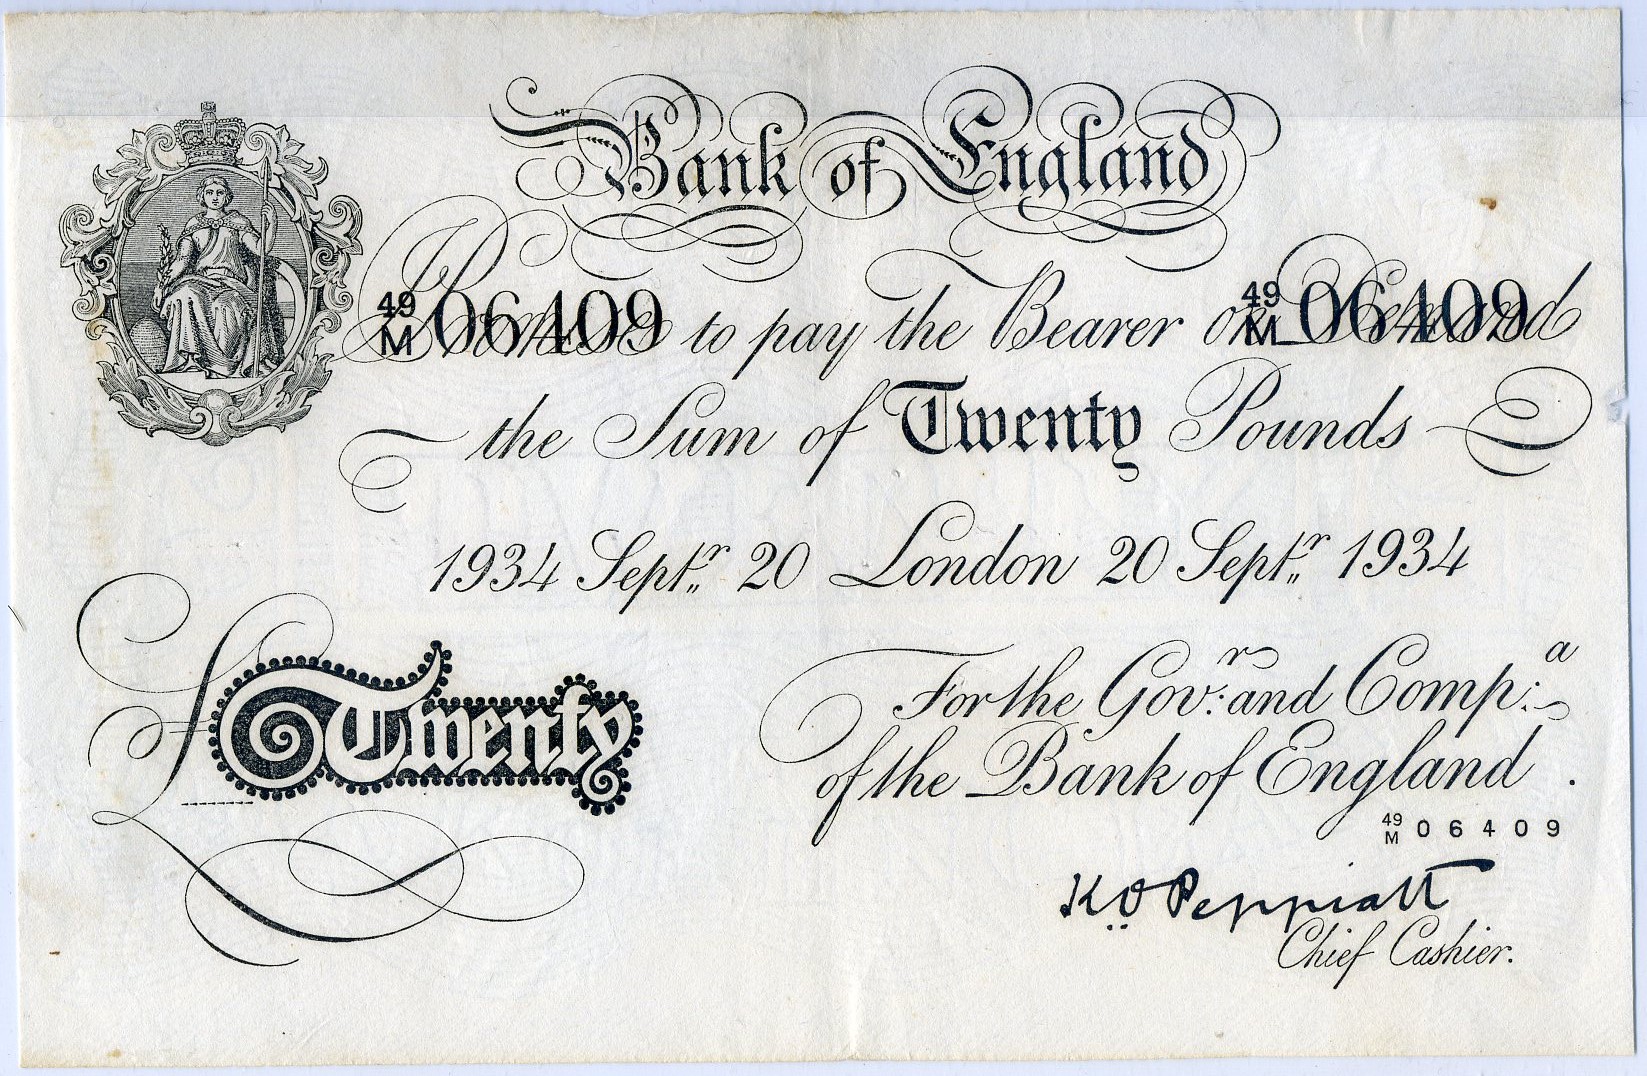 Bank of England
49/M 06409 I Promise to pay the Bearer on Demand 49/M 06409
the Sum of Twenty Pounds
1934 Septr 20 London 20 Septr 1934
£Twenty
For the Govr: and Compa:
of the Bank of England.
49/M 06409
K O Peppiatt
Chief Cashier.